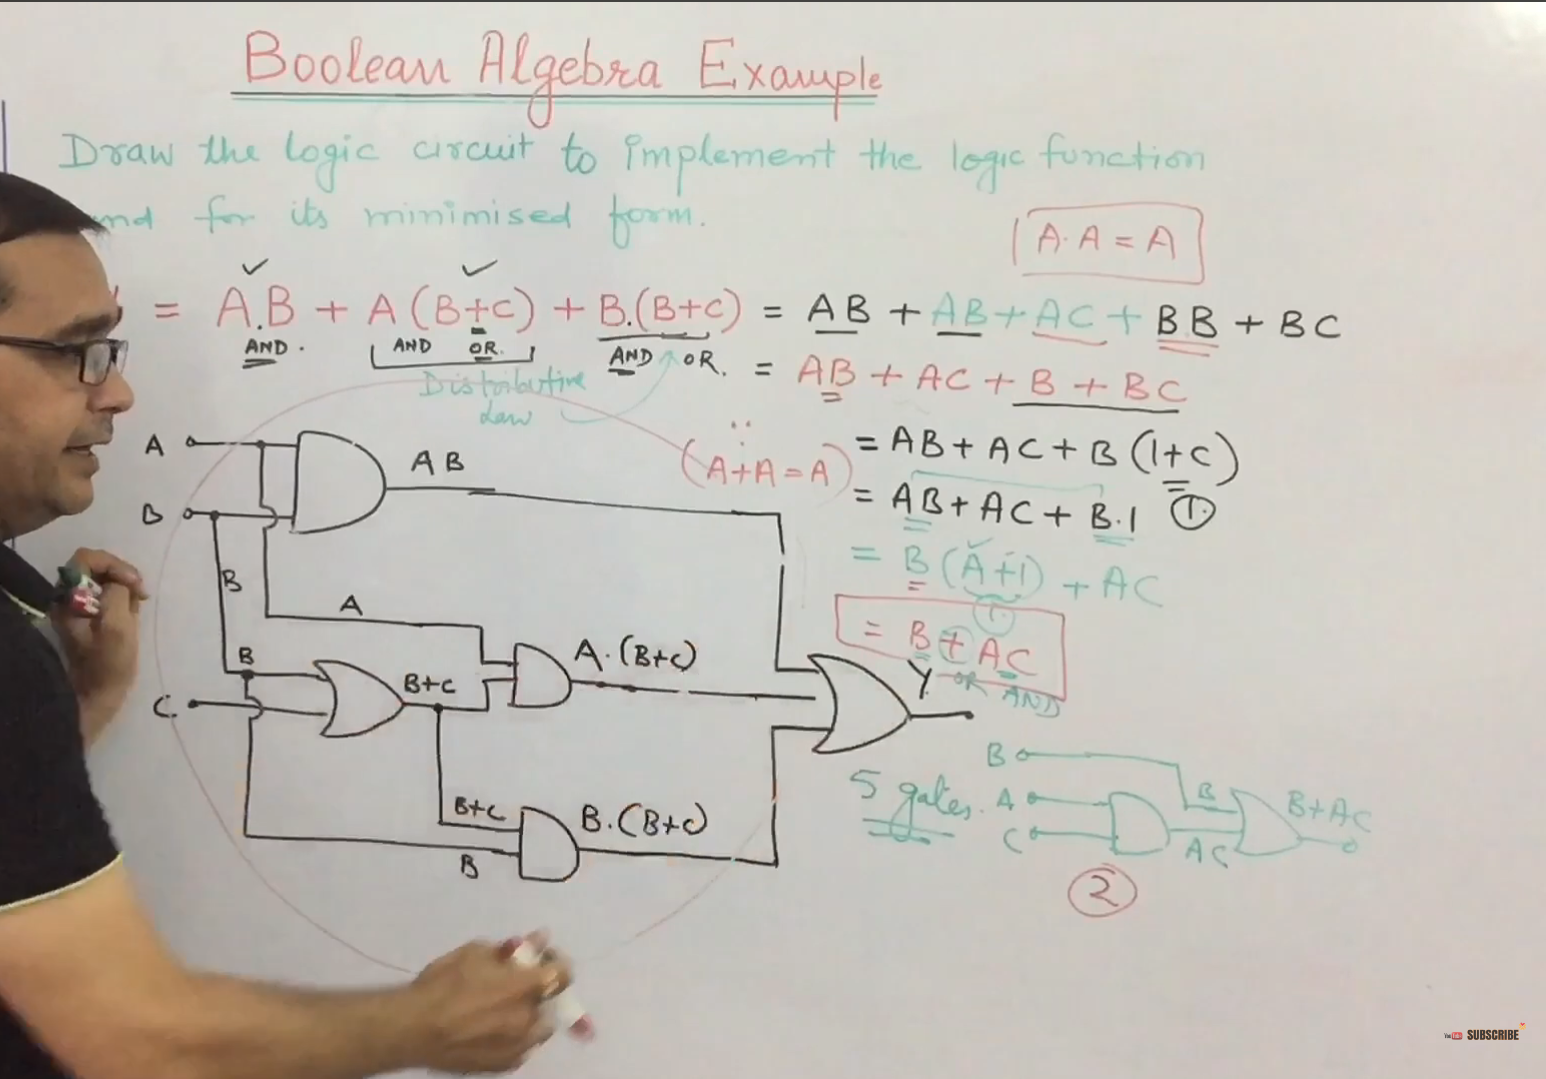 Boolean Algebra Example
Draw the logic circuit to implement the logic function
for its minimised form.
A.A = A
= A.B + A(B+C) + B.(B+C) = AB + AB + AC + BB + BC
AND. AND OR. AND OR.
= AB + AC + B + BC
Distributive
Law
(A+A=A)
= AB + AC + B(1+C)
= AB + AC + B.1 1.
= B(A+1) + AC
1.
= B + AC
OR AND
A
AB
B
B
A
B
C
B+C
A.(B+C)
Y
B+C
B.(B+C)
B
5 gates.
B
A
C
B
AC
B+AC
2
YouTube SUBSCRIBE